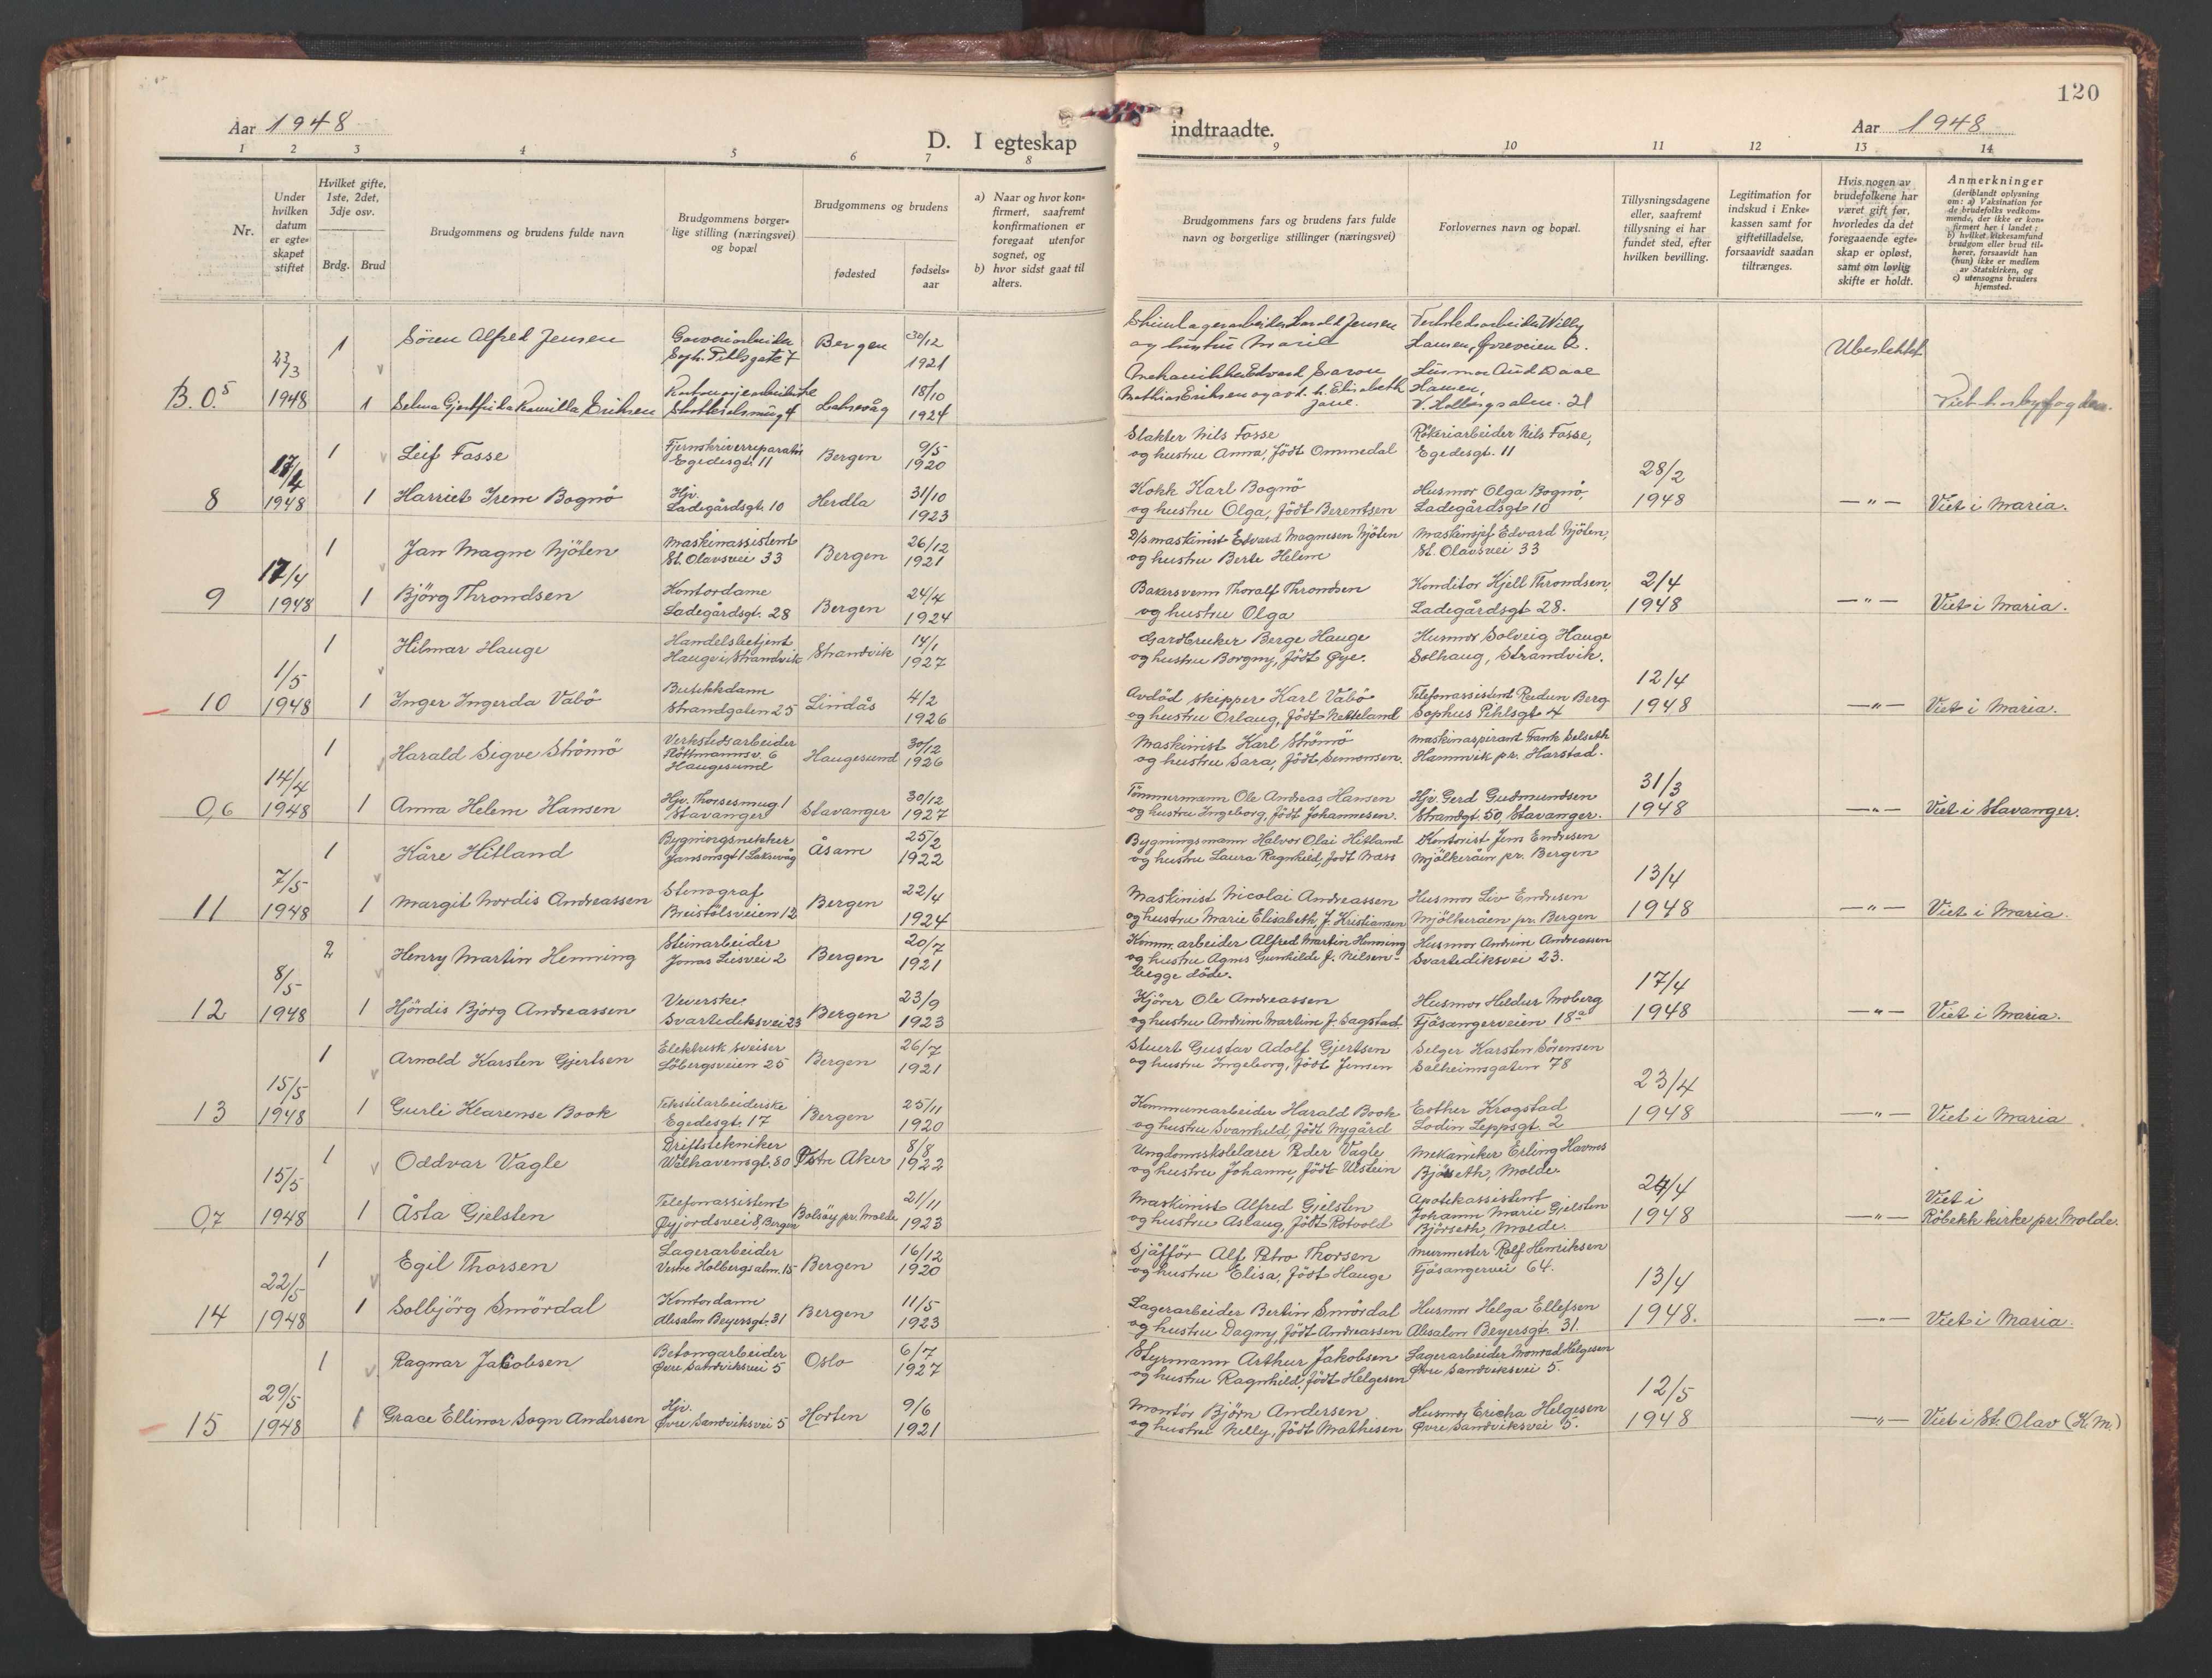 120
Aar 1948
D. I egteskap
indtraadte.
Aar 1948
1 2 3 4 5 6 7 8 9 10 11 12 13 14
Nr.
Under hvilken datum er egteskapet stiftet
Hvilket gifte, 1ste, 2det, 3dje osv.
Brdg. Brud
Brudgommens og brudens fulde navn
Brudgommens borgerlige stilling (næringsvei) og bopæl
Brudgommens og brudens
fødested
fødselsaar
a) Naar og hvor konfirmert, saafremt konfirmationen er foregaat utenfor sognet, og
b) hvor sidst gaat til alters.
Brudgommens fars og brudens fars fulde navn og borgerlige stillinger (næringsvei)
Forlovernes navn og bopæl.
Tillysningsdagene eller, saafremt tillysning ei har fundet sted, efter hvilken bevilling.
Legitimation for indskud i Enkekassen samt for giftetilladelse, forsaavidt saadan tiltrænges.
Hvis nogen av brudefolkene har været gift før, hvorledes da det foregaaende egteskap er opløst, samt om lovlig skifte er holdt.
Anmerkninger
(deriblandt oplysning om: a) Vaksination for de brudefolks vedkommende, der ikke er konfirmert her i landet; b) hvilket kirkesamfund brudgom eller brud tilhører, forsaavidt han (hun) ikke er medlem av Statskirken, og c) utensogns bruders hjemsted.
B.O.5 23/3 1948
1 Sören Alfred Jensen
Garveriarbeider
Soph. Pihlsgate 7
Bergen 30/12 1921
Harald Jensen
og hustru Marie
Verkstedsarbeider Willy
Hansen, Øvreveien 2.
1 Selma Gjertfrida Kamilla Eriksen
Laksevåg 18/10 1924
Mekaniker Edvard
Mathias Eriksen og h. Elisabeth
Jane.
Husmor Aud Daae
Hansen,
V. Holbergsalm. 21
Ubeslektet
Viet hos byfogden.
8 17/4 1948
1 Leif Fosse
Fjernskriverreparatör
Egedesgt. 11
Bergen 9/5 1920
Slakter Nils Fosse
og hustru Anna, födt Ommedal
Rökeriarbeider Nils Fosse,
Egedesgt. 11
1 Harriet Irene Bognö
Hjv.
Ladegårdsgt. 10
Herdla 31/10 1923
Kokk Karl Bognö
og hustru Olga, födt Berentsen
Husmor Olga Bognö,
Ladegårdsgt 10
28/2 1948
—"— Viet i Maria.
9 17/4 1948
1 Jan Magne Njöten
Maskinassistent
St. Olavsvei 33
Bergen 26/12 1921
D/s maskinist Edvard Magnesen Njöten
og hustru Berte Helene
Maskinsjef Edvard Njöten,
St. Olavsvei 33
1 Björg Throndsen
Kontordame
Ladegårdsgt. 28
Bergen 24/4 1924
Bakersvenn Thoralf Throndsen
og hustru Olga
Konditor Kjell Throndsen,
Ladegårdsgt 28.
2/4 1948
—"— Viet i Maria.
10 1/5 1948
1 Hilmar Hauge
Handelsbetjent
Hauge i Strandvik
Strandvik 14/1 1927
Gardbruker Berge Hauge
og hustru Borgny, födt Øye.
Husmor Solveig Hauge
Solhaug, Strandvik.
1 Inger Ingerda Vabö
Butikkdame
Strandgaten 25
Lindås 4/2 1926
Avdöd skipper Karl Vabö
og hustru Orlaug, födt Netteland
Telefonassistent Reidun Berg
Sophus Pihlsgt 4
12/4 1948
—"— Viet i Maria.
0,6 14/4 1948
1 Harald Sigve Strömö
Verkstedsarbeider
Röttmannsv. 6
Haugesund
Haugesund 30/12 1926
Maskinist Karl Strömö
og hustru Sara, födt Simonsen.
Maskinaspirant Frank Selseth
Hamnvik pr. Harstad.
1 Anna Helene Hansen
Hjv. Thorsesmug. 1
Stavanger
Stavanger 30/12 1927
Tömmermann Ole Andreas Hansen
og hustru Ingeborg, födt Johannesen.
Hjv. Gerd Gudmundsen
Strandgt. 50, Stavanger.
31/3 1948
—"— Viet i Stavanger.
11 7/5 1948
1 Kåre Hitland
Bygningssnekker
Jansonsgt 1 Laksevåg
Åsane 25/2 1922
Bygningsmann Halvor Olai Hitland
og hustru Laura Ragnhild, födt Næss
Kontorist Jens Endresen
Mjölkeråen pr. Bergen
1 Margit Nordis Andreassen
Stenograf
Breistölsveien 12
Bergen 22/4 1924
Maskinist Nicolai Andreassen
og hustru Marie Elisabeth f. Kristiansen
Husmor Liv Endresen
Mjölkeråen pr. Bergen
13/4 1948
—"— Viet i Maria.
12 8/5 1948
2 Henry Martin Henning
Steinarbeider
Jonas Liesvei 2
Bergen 20/7 1921
Komm. arbeider Alfred Martin Henning
og hustru Agnes Gunhilde f. Nilsen-
begge döde.
Husmor Andrine Andreassen
Svartediksvei 23.
1 Hjördis Björg Andreassen
Veverske
Svartediksvei 23
Bergen 23/9 1923
Kjörer Ole Andreassen
og hustru Andrine Martine f. Sagstad
Husmor Hildur Moberg
Fjösangerveien 18a
17/4 1948
—"— Viet i Maria.
13 15/5 1948
1 Arnold Karsten Gjertsen
Elektrisk sveiser
Löbergsveien 25
Bergen 26/7 1921
Stuert Gustav Adolf Gjertsen
og hustru Ingeborg, födt Jensen
Selger Karsten Sörensen
Solheimsgaten 78
1 Gurli Klarense Book
Tekstilarbeiderske
Egedesgt. 17
Bergen 25/11 1920
Kommunearbeider Harald Book
og hustru Svanhild, födt Nygård
Esther Krogstad
Lodin Leppsgt. 2
23/4 1948
—"— Viet i Maria
0,7 15/5 1948
1 Oddvar Vagle
Driftstekniker
Welhavensgt. 80
Østre Aker 8/8 1922
Ungdomsskolelærer Peder Vagle
og hustru Johanne, födt Ulstein
Mekaniker Erling Havnes
Björseth, Molde.
1 Åsta Gjelsten
Telefonassistent
Øyjordsvei 8, Bergen
Bolsöy pr. Molde 21/11 1923
Maskinist Alfred Gjelsten
og hustru Aslaug, födt Rotvold
Apotekassistent
Johanne Marie Gjelsten
Björseth, Molde.
24/4 1948
—"— Viet i
Röbekk kirke pr. Molde.
14 22/5 1948
1 Egil Thorsen
Lagerarbeider
Vestre Holbergsalm. 15
Bergen 16/12 1920
Sjåför Alf Petro Thorsen
og hustru Elisa, födt Hauge
Murmester Rolf Henriksen
Fjösangervei 64.
1 Solbjörg Smördal
Kontordame
Absalon Beyersgt. 31
Bergen 11/5 1923
Lagerarbeider Bertin Smördal
og hustru Dagny, födt Andreassen
Husmor Helga Ellefsen
Absalon Beyersgt. 31.
13/4 1948.
—"— Viet i Maria.
15 29/5 1948
1 Ragnar Jakobsen
Betongarbeider
Øvre Sandviksvei 5
Oslo 6/7 1927
Styrmann Arthur Jakobsen
og hustru Ragnhild, födt Helgesen
Lagerarbeider Monrad Helgesen
Øvre Sandviksvei 5.
1 Grace Ellinor Sogn Andersen
Hjv.
Øvre Sandviksvei 5
Horten 9/6 1921
Montör Björn Andersen
og hustru Nelly, födt Mathisen
Husmor Ericha Helgesen
Øvre Sandviksvei 5.
12/5 1948
—"— Viet i St. Olav (K.M.)